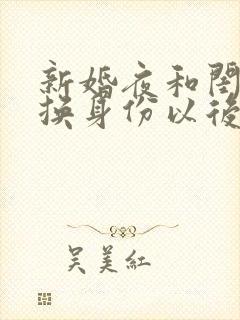 新婚夜和閨
换身份以後
吴美紅